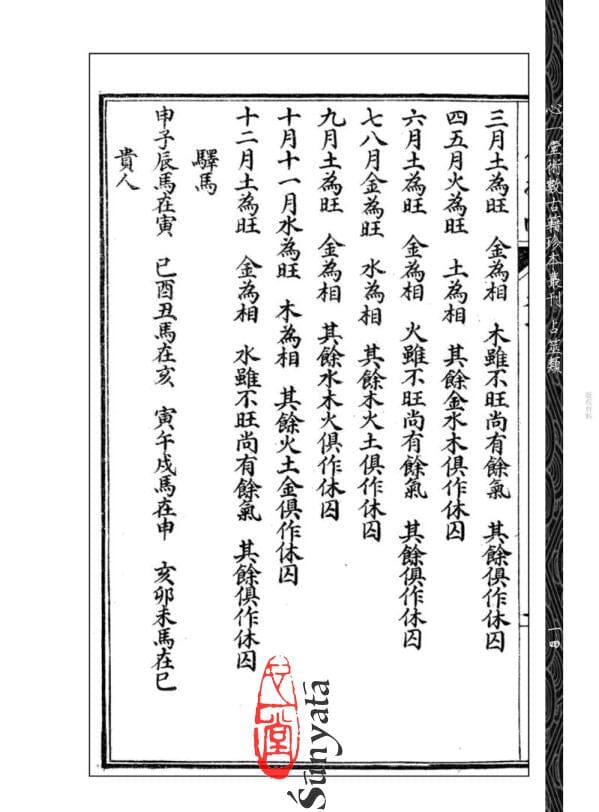 心一堂術數古籍珍本叢刊 占筮類
一四
三月土為旺 金為相 木雖不旺尚有餘氣 其餘俱作休囚
四五月火為旺 土為相 其餘金水木俱作休囚
六月土為旺 金為相 火雖不旺尚有餘氣 其餘俱作休囚
七八月金為旺 水為相 其餘木火土俱作休囚
九月土為旺 金為相 其餘水木火俱作休囚
十月十一月水為旺 木為相 其餘火土金俱作休囚
十二月土為旺 金為相 水雖不旺尚有餘氣 其餘俱作休囚
驛馬
申子辰馬在寅 巳酉丑馬在亥 寅午戌馬在申 亥卯未馬在巳
貴人
心一堂
Śūnyatā